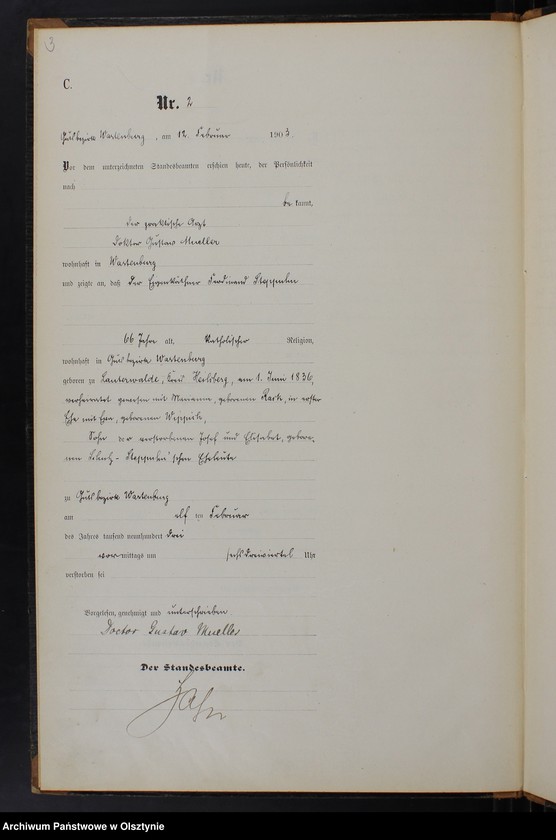 3
C.
Nr. 2
Gutsbezirk Wartenburg, am 12. Februar 1903.
Vor dem unterzeichneten Standesbeamten erschien heute, der Persönlichkeit
nach
be kannt,
der praktische Arzt
Doktor Gustav Mueller
wohnhaft in Wartenburg
und zeigte an, daß der Ferdinand
66 Jahre alt, katholischer Religion,
wohnhaft in Gutsbezirk Wartenburg
geboren zu Lauterwalde, Kreis Heilsberg, am 1. Juni 1836,
verheiratet gewesen mit Marianna, geborenen in erster
Ehe mit geborenen
Sohn der verstorbenen Josef und Elisabet, gebore-
nen Eheleute
zu Gutsbezirk Wartenburg
am elf ten Februar
des Jahres tausend neunhundert drei
vor mittags um sechs dreiviertel Uhr
verstorben sei
Vorgelesen, genehmigt und unterschrieben
Doctor Gustav Mueller
Der Standesbeamte.
Hahn
Archiwum Państwowe w Olsztynie